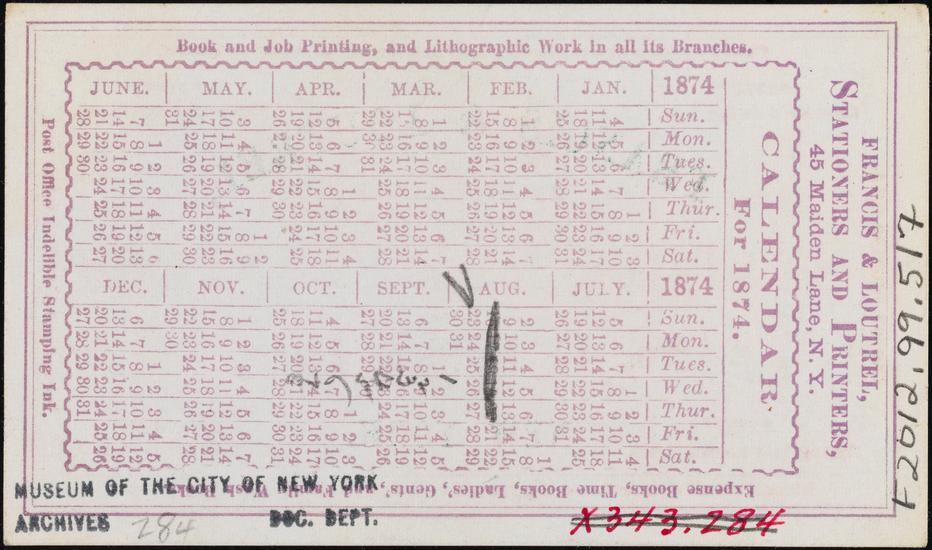 Book and Job Printing, and Lithographic Work in all its Branches.
JUNE. MAY. APR. MAR. FEB. JAN. 1874
28 21 14 7 31 24 17 10 3 26 19 12 5 29 22 15 8 1 22 15 8 1 25 18 11 4 Sun.
29 22 15 8 1 25 18 11 4 27 20 13 6 30 23 16 9 2 23 16 9 2 26 19 12 5 Mon.
30 23 16 9 2 26 19 12 5 28 21 14 7 31 24 17 10 3 24 17 10 3 27 20 13 6 Tues.
24 17 10 3 27 20 13 6 29 22 15 8 1 25 18 11 4 25 18 11 4 28 21 14 7 Wed.
25 18 11 4 28 21 14 7 30 23 16 9 2 26 19 12 5 26 19 12 5 29 22 15 8 1 Thur.
26 19 12 5 29 22 15 8 1 24 17 10 3 27 20 13 6 27 20 13 6 30 23 16 9 2 Fri.
27 20 13 6 30 23 16 9 2 25 18 11 4 28 21 14 7 28 21 14 7 31 24 17 10 3 Sat.
DEC. NOV. OCT. SEPT. AUG. JULY. 1874
27 20 13 6 29 22 15 8 1 25 18 11 4 27 20 13 6 30 23 9 2 26 19 12 5 Sun.
28 21 14 7 30 23 16 9 2 26 19 12 5 28 21 14 7 31 24 10 3 27 20 13 6 Mon.
29 22 15 8 1 24 17 10 3 27 20 13 6 29 22 15 8 1 25 11 4 28 21 14 7 Tues.
30 23 16 9 2 25 18 11 4 28 21 14 7 30 23 16 9 2 26 12 5 29 22 15 8 1 Wed.
31 24 17 10 3 26 19 12 5 29 22 15 8 1 24 17 10 3 27 13 6 30 23 16 9 2 Thur.
25 18 11 4 27 20 13 6 30 23 16 9 2 25 18 11 4 28 21 14 7 31 24 17 10 3 Fri.
26 19 12 5 28 21 14 7 31 24 17 10 3 26 19 12 5 29 22 15 8 1 25 18 11 4 Sat.
CALENDAR
For 1874.
FRANCIS & LOUTREL,
STATIONERS AND PRINTERS,
45 Maiden Lane, N. Y.
Post Office Indelible Stamping Ink.
Expense Books, Time Books, Ladies', Gents', and Family Wash Books.
MUSEUM OF THE CITY OF NEW YORK
ARCHIVES 284 DOC. DEPT.
X343.284
F2012.99.517